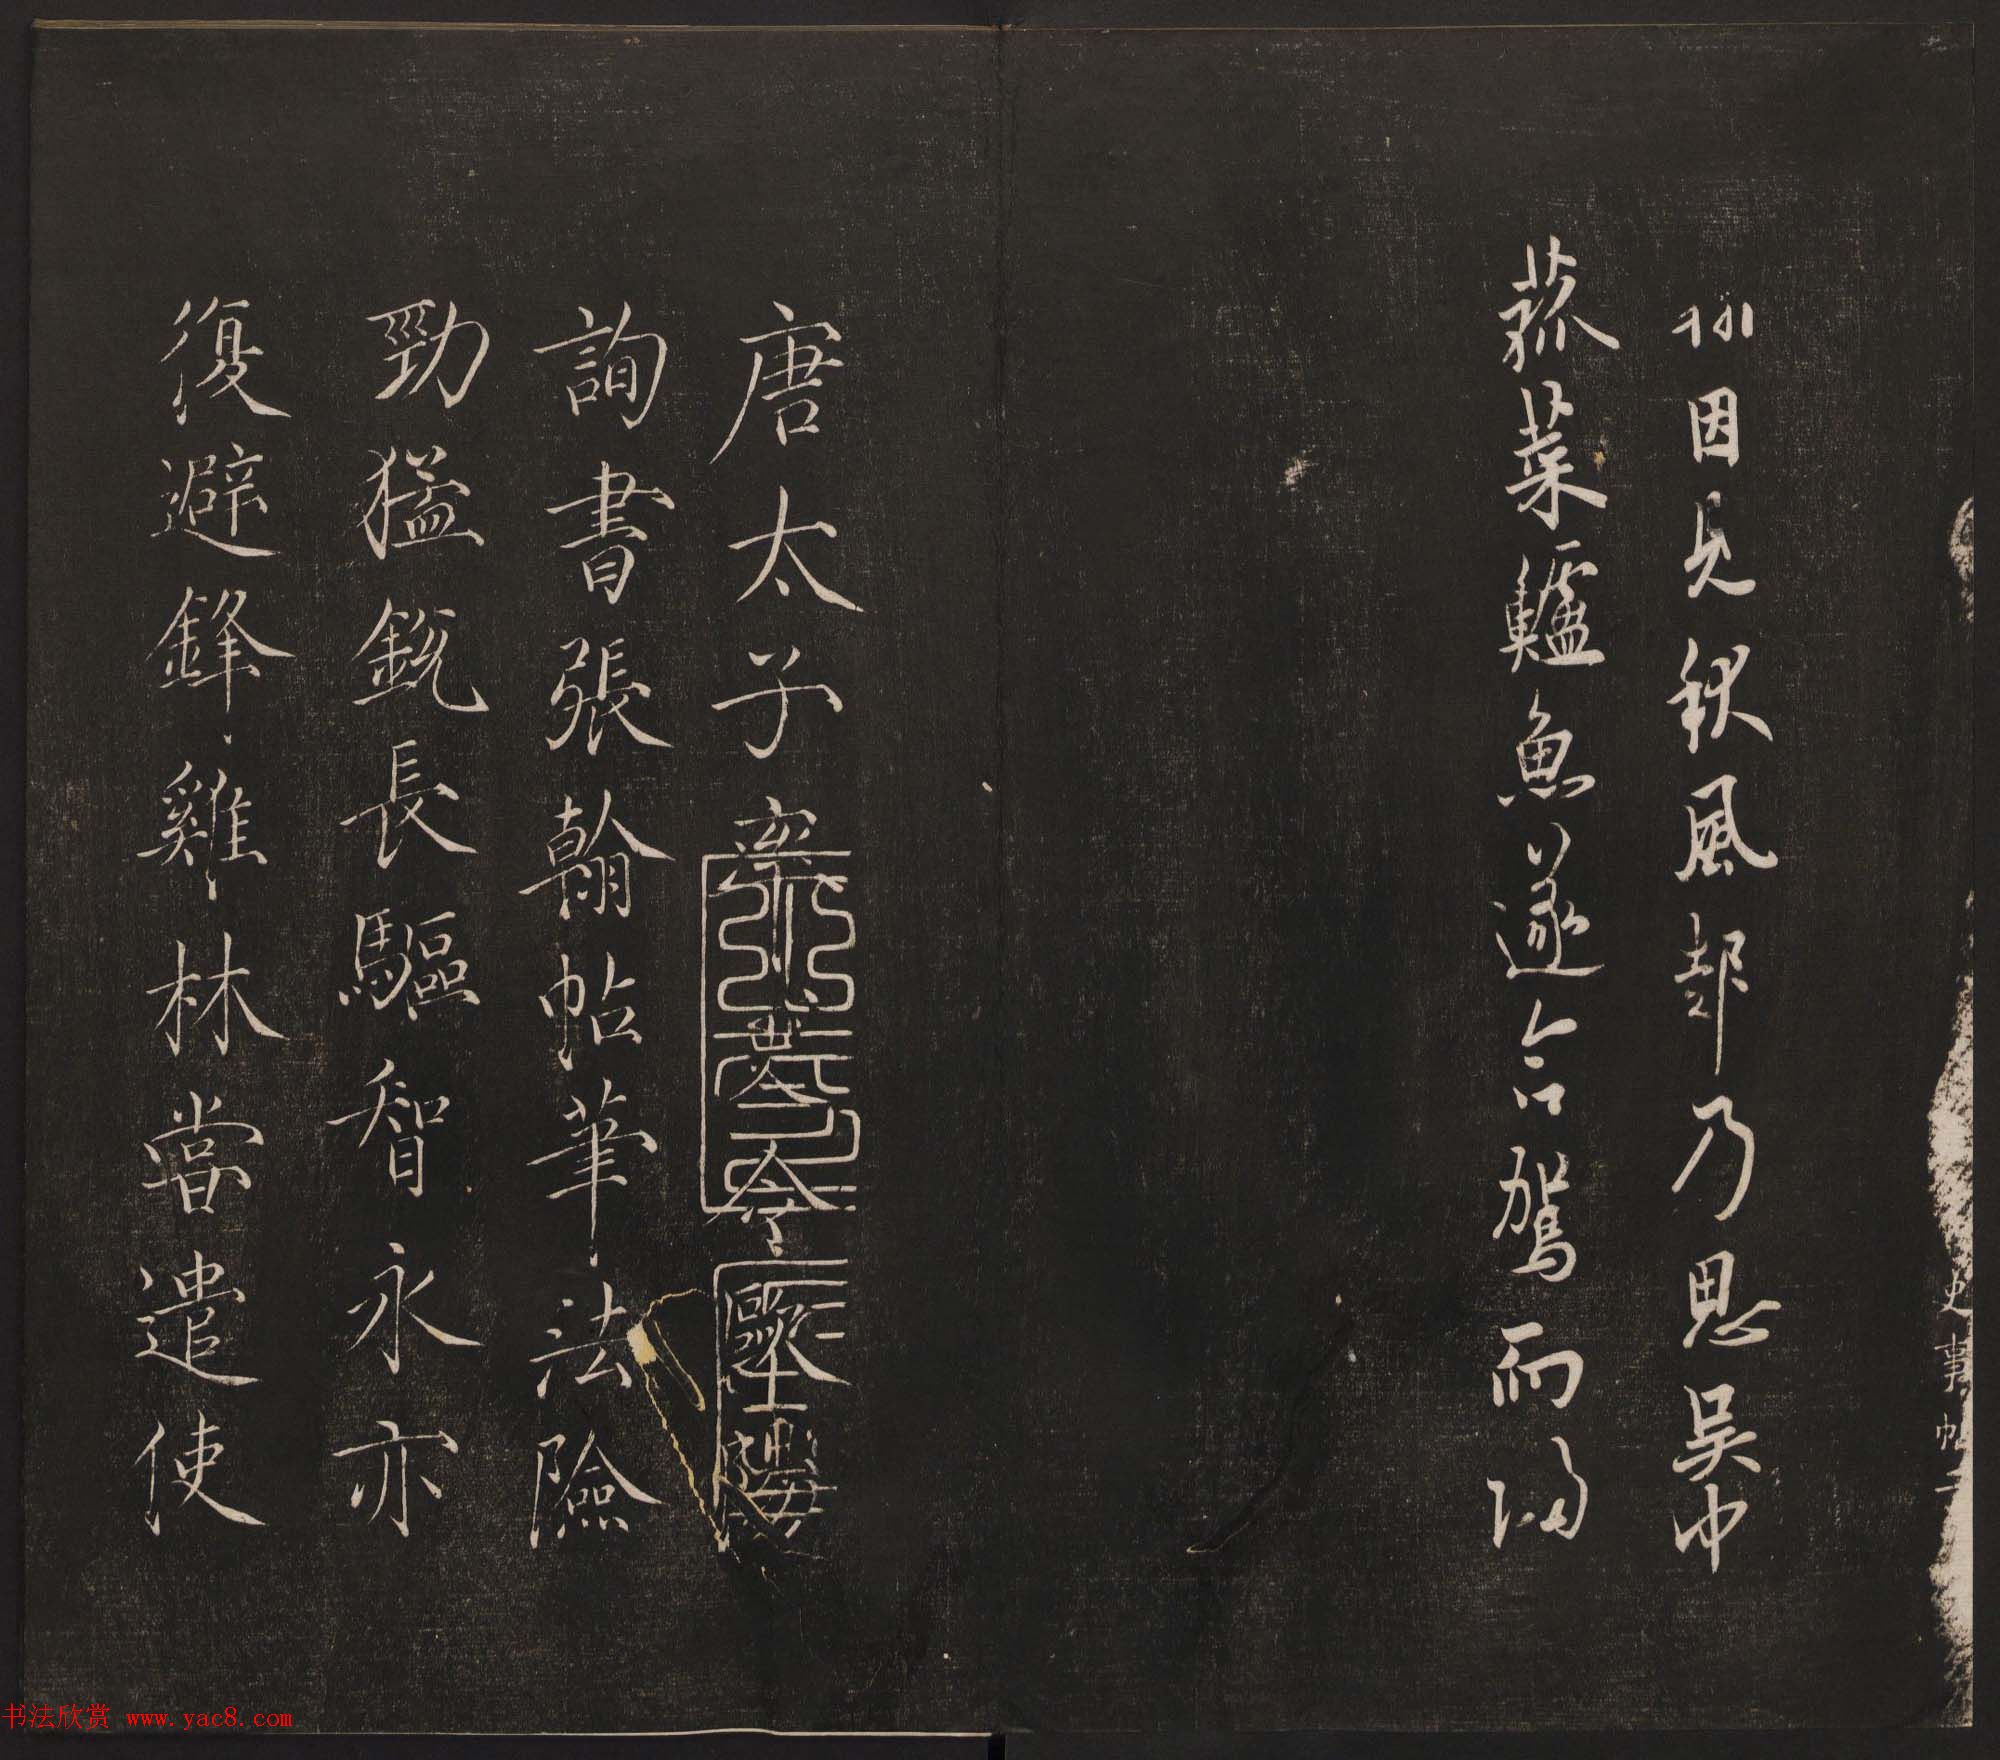 因見秋風起乃思吳中
菰菜鱸魚遂命駕而歸
唐太子率更令歐陽
詢書張翰帖筆法險
勁猛銳長驅智永亦
復避鋒雞林當遣使
史事帖二
书法欣赏 www.yac8.com